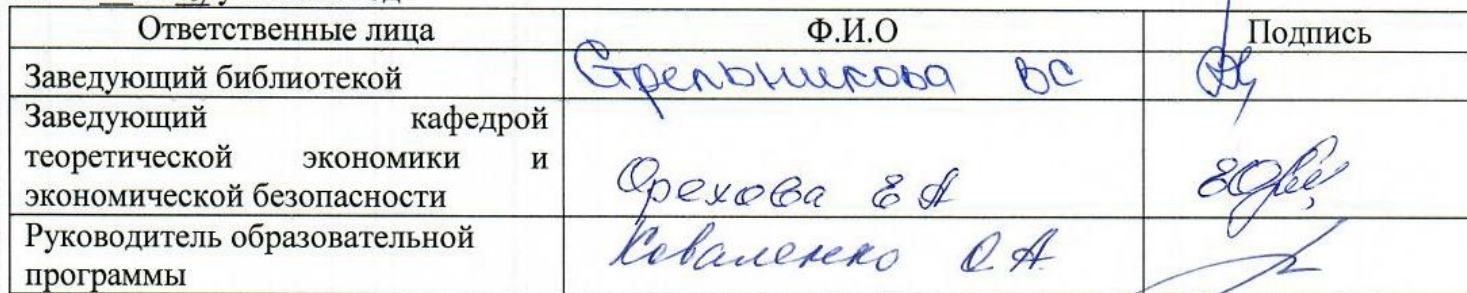 Ответственные лица Ф.И.О Подпись
Заведующий библиотекой Стрельникова ВС
Заведующий кафедрой
теоретической экономики и
экономической безопасности Орехова Е А
Руководитель образовательной Коваленко О.А.
программы